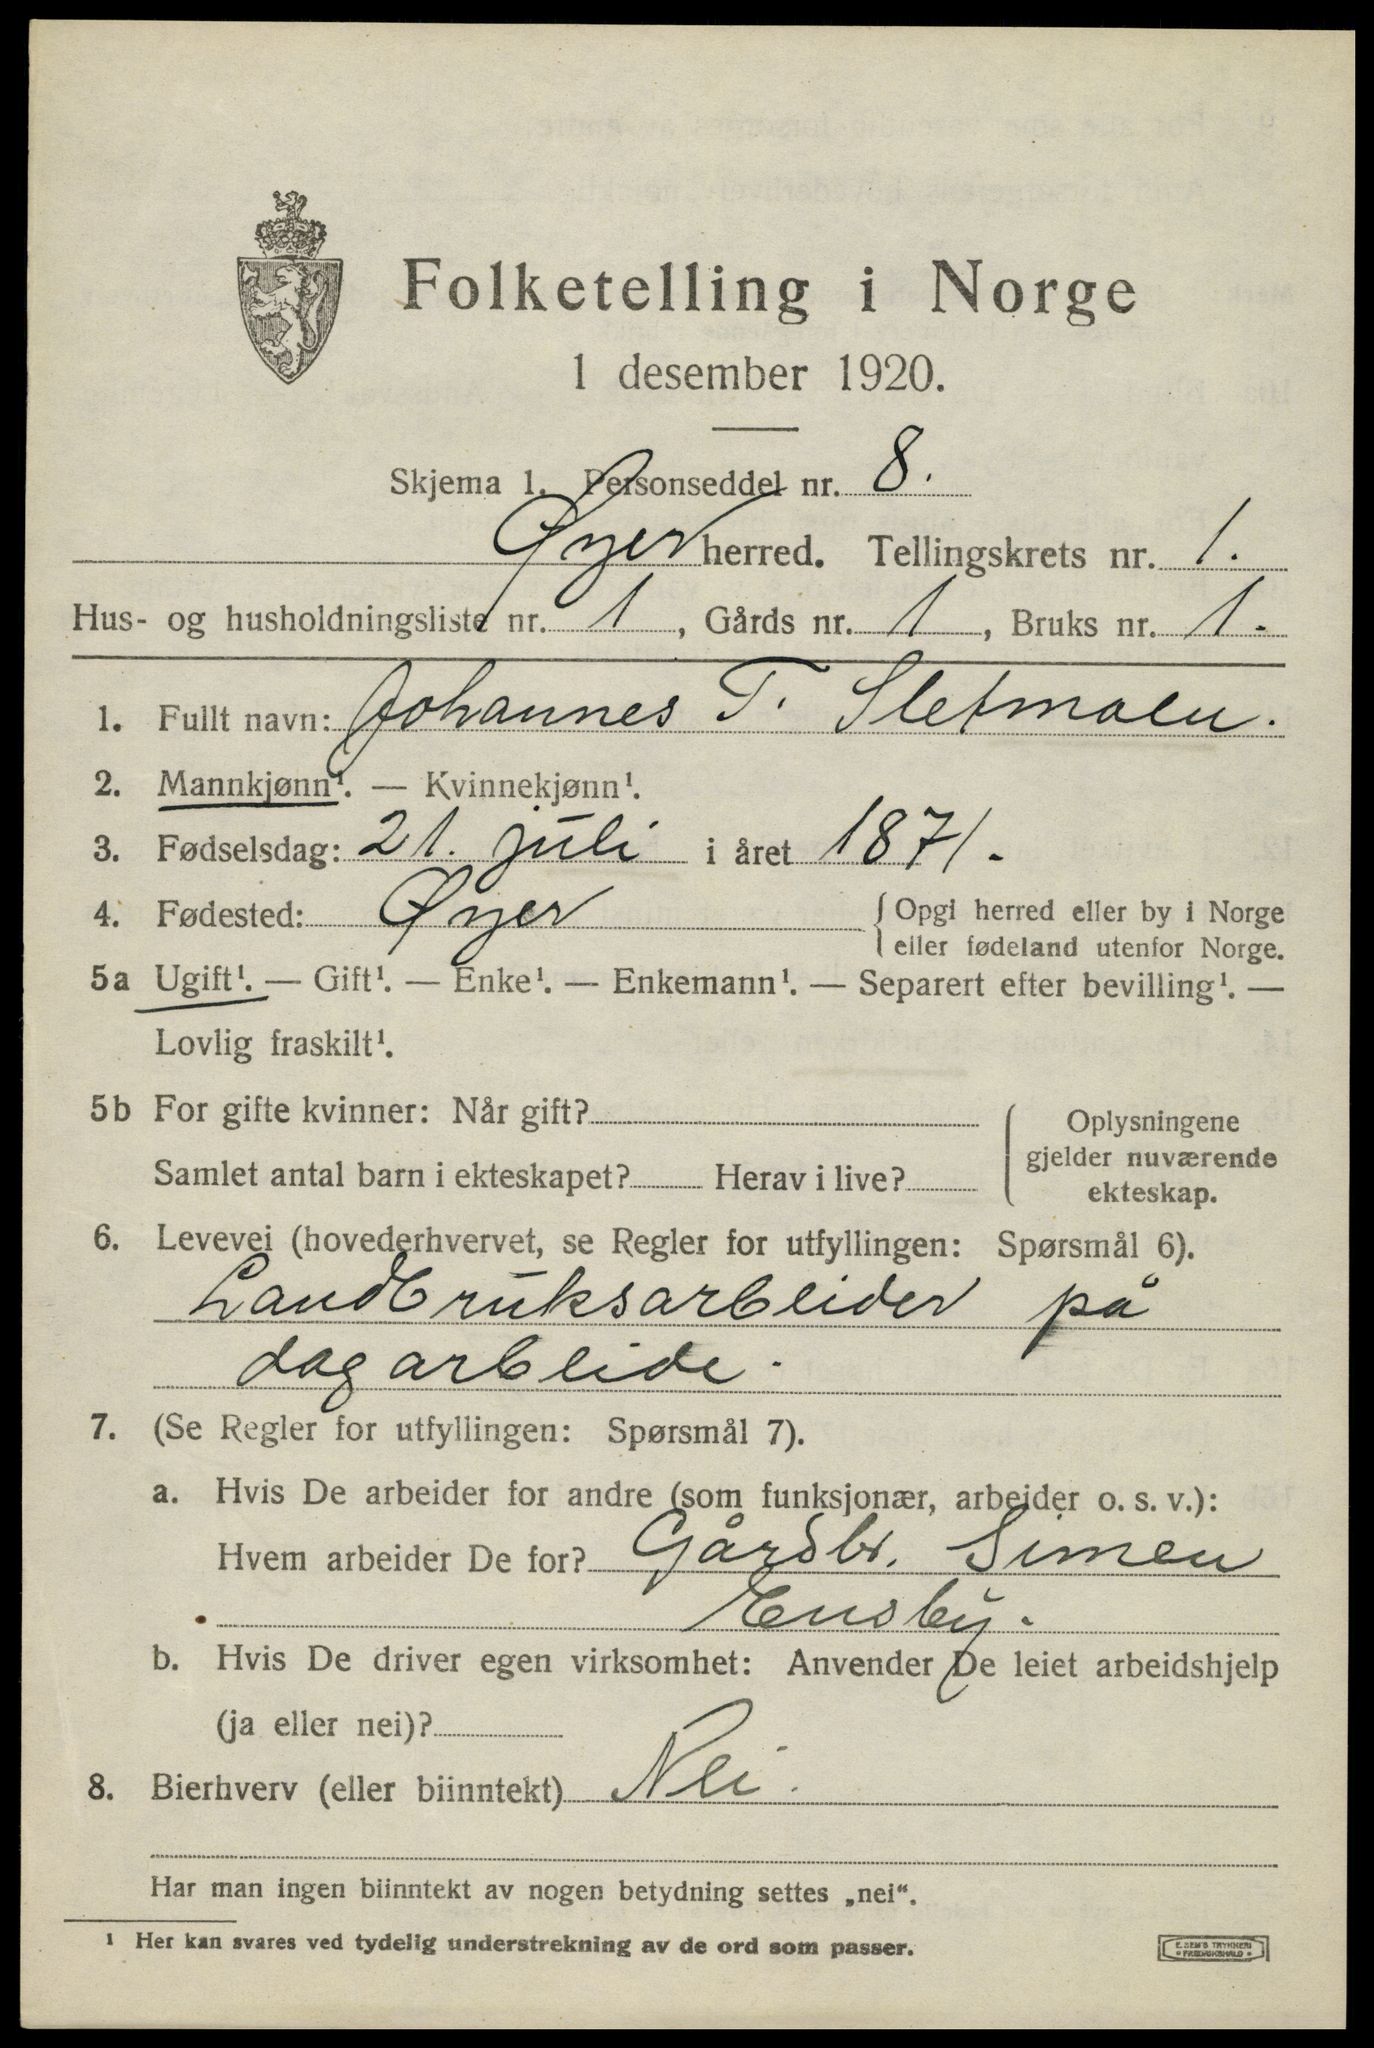 Folketelling i Norge
1 desember 1920.
Skjema 1. Personseddel nr. 8.
Øyer herred. Tellingskrets nr. 1.
Hus- og husholdningsliste nr. 1, Gårds nr. 1, Bruks nr. 1.
1. Fullt navn: Johannes T. Sletmoen.
2. Mannkjønn¹. — Kvinnekjønn¹.
3. Fødselsdag: 21. juli i året 1871.
4. Fødested: Øyer {Opgi herred eller by i Norge
eller fødeland utenfor Norge.
5a Ugift¹. — Gift¹. — Enke¹. — Enkemann¹. — Separert efter bevilling¹. —
Lovlig fraskilt¹.
5b For gifte kvinner: Når gift?
Samlet antal barn i ekteskapet? Herav i live?
Oplysningene
gjelder nuværende
ekteskap.
6. Levevei (hovederhvervet, se Regler for utfyllingen: Spørsmål 6).
Landbruksarbeider på
dagarbeide.
7. (Se Regler for utfyllingen: Spørsmål 7).
a. Hvis De arbeider for andre (som funksjonær, arbeider o. s. v.):
Hvem arbeider De for? Gårdbr. Simen
Ensby.
b. Hvis De driver egen virksomhet: Anvender De leiet arbeidshjelp
(ja eller nei)?
8. Bierhverv (eller biinntekt) Nei.
Har man ingen biinntekt av nogen betydning settes „nei“.
¹ Her kan svares ved tydelig understrekning av de ord som passer.
E. SEM'S TRYKKERI
FREDRIKSHALD